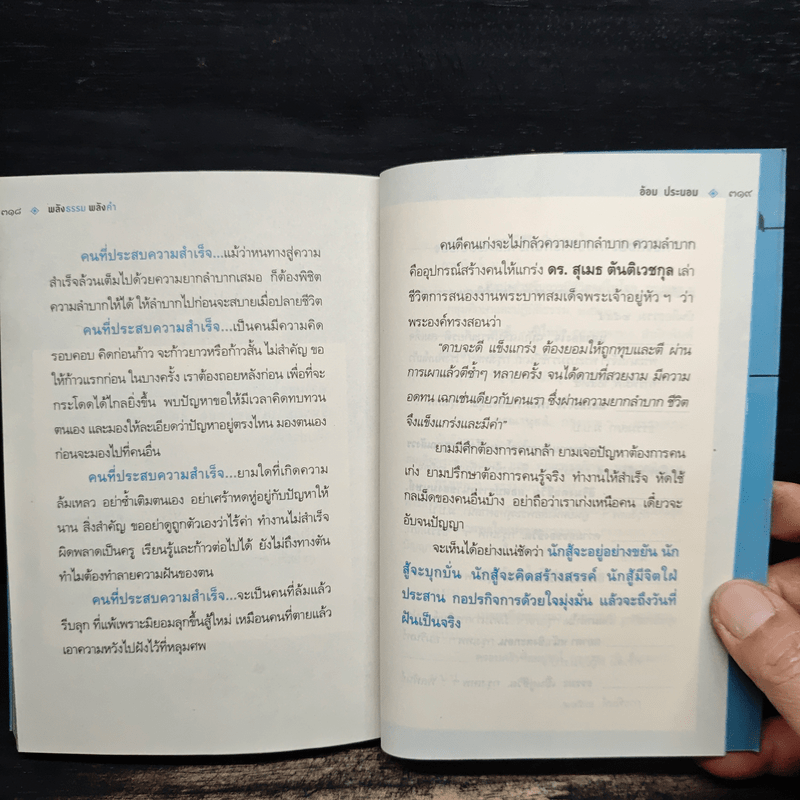 ๓๑๘ พลังธรรม พลังคำ
คนที่ประสบความสำเร็จ...แม้ว่าหนทางสู่ความ
สำเร็จล้วนเต็มไปด้วยความยากลำบากเสมอ ก็ต้องพิชิต
ความลำบากให้ได้ ให้ลำบากไปก่อนจะสบายเมื่อปลายชีวิต
คนที่ประสบความสำเร็จ...เป็นคนมีความคิด
รอบคอบ คิดก่อนก้าว จะก้าวยาวหรือก้าวสั้น ไม่สำคัญ ขอ
ให้ก้าวแรกก่อน ในบางครั้ง เราต้องถอยหลังก่อน เพื่อที่จะ
กระโดดได้ไกลยิ่งขึ้น พบปัญหาขอให้มีเวลาคิดทบทวน
ตนเอง และมองให้ละเอียดว่าปัญหาอยู่ตรงไหน มองตนเอง
ก่อนจะมองไปที่คนอื่น
คนที่ประสบความสำเร็จ...ยามใดที่เกิดความ
ล้มเหลว อย่าซ้ำเติมตนเอง อย่าเศร้าหดหู่อยู่กับปัญหาให้
นาน สิ่งสำคัญ ขออย่าดูถูกตัวเองว่าไร้ค่า ทำงานไม่สำเร็จ
ผิดพลาดเป็นครู เรียนรู้และก้าวต่อไปได้ ยังไม่ถึงทางตัน
ทำไมต้องทำลายความฝันของตน
คนที่ประสบความสำเร็จ...จะเป็นคนที่ล้มแล้ว
รีบลุก ที่แพ้เพราะมิยอมลุกขึ้นสู้ใหม่ เหมือนคนที่ตายแล้ว
เอาความหวังไปฝังไว้ที่หลุมศพ
อ้อม ประนอม ๓๑๙
คนดีคนเก่งจะไม่กลัวความยากลำบาก ความลำบาก
คืออุปกรณ์สร้างคนให้แกร่ง ดร. สุเมธ ตันติเวชกุล เล่า
ชีวิตการสนองงานพระบาทสมเด็จพระเจ้าอยู่หัว ฯ ว่า
พระองค์ทรงสอนว่า
"ดาบจะดี แข็งแกร่ง ต้องยอมให้ถูกทุบและตี ผ่าน
การเผาแล้วตีซ้ำๆ หลายครั้ง จนได้ดาบที่สวยงาม มีความ
อดทน เฉกเช่นเดียวกับคนเรา ซึ่งผ่านความยากลำบาก ชีวิต
จึงแข็งแกร่งและมีค่า"
ยามมีศึกต้องการคนกล้า ยามเจอปัญหาต้องการคน
เก่ง ยามปรึกษาต้องการคนรู้จริง ทำงานให้สำเร็จ หัดใช้
กลเม็ดของคนอื่นบ้าง อย่าถือว่าเราเก่งเหนือคน เดี๋ยวจะ
อับจนปัญญา
จะเห็นได้อย่างแน่ชัดว่า นักสู้จะอยู่อย่างขยัน นัก
สู้จะบุกบั่น นักสู้จะคิดสร้างสรรค์ นักสู้มีจิตใฝ่
ประสาน กอปรกิจการด้วยใจมุ่งมั่น แล้วจะถึงวันที่
ฝันเป็นจริง